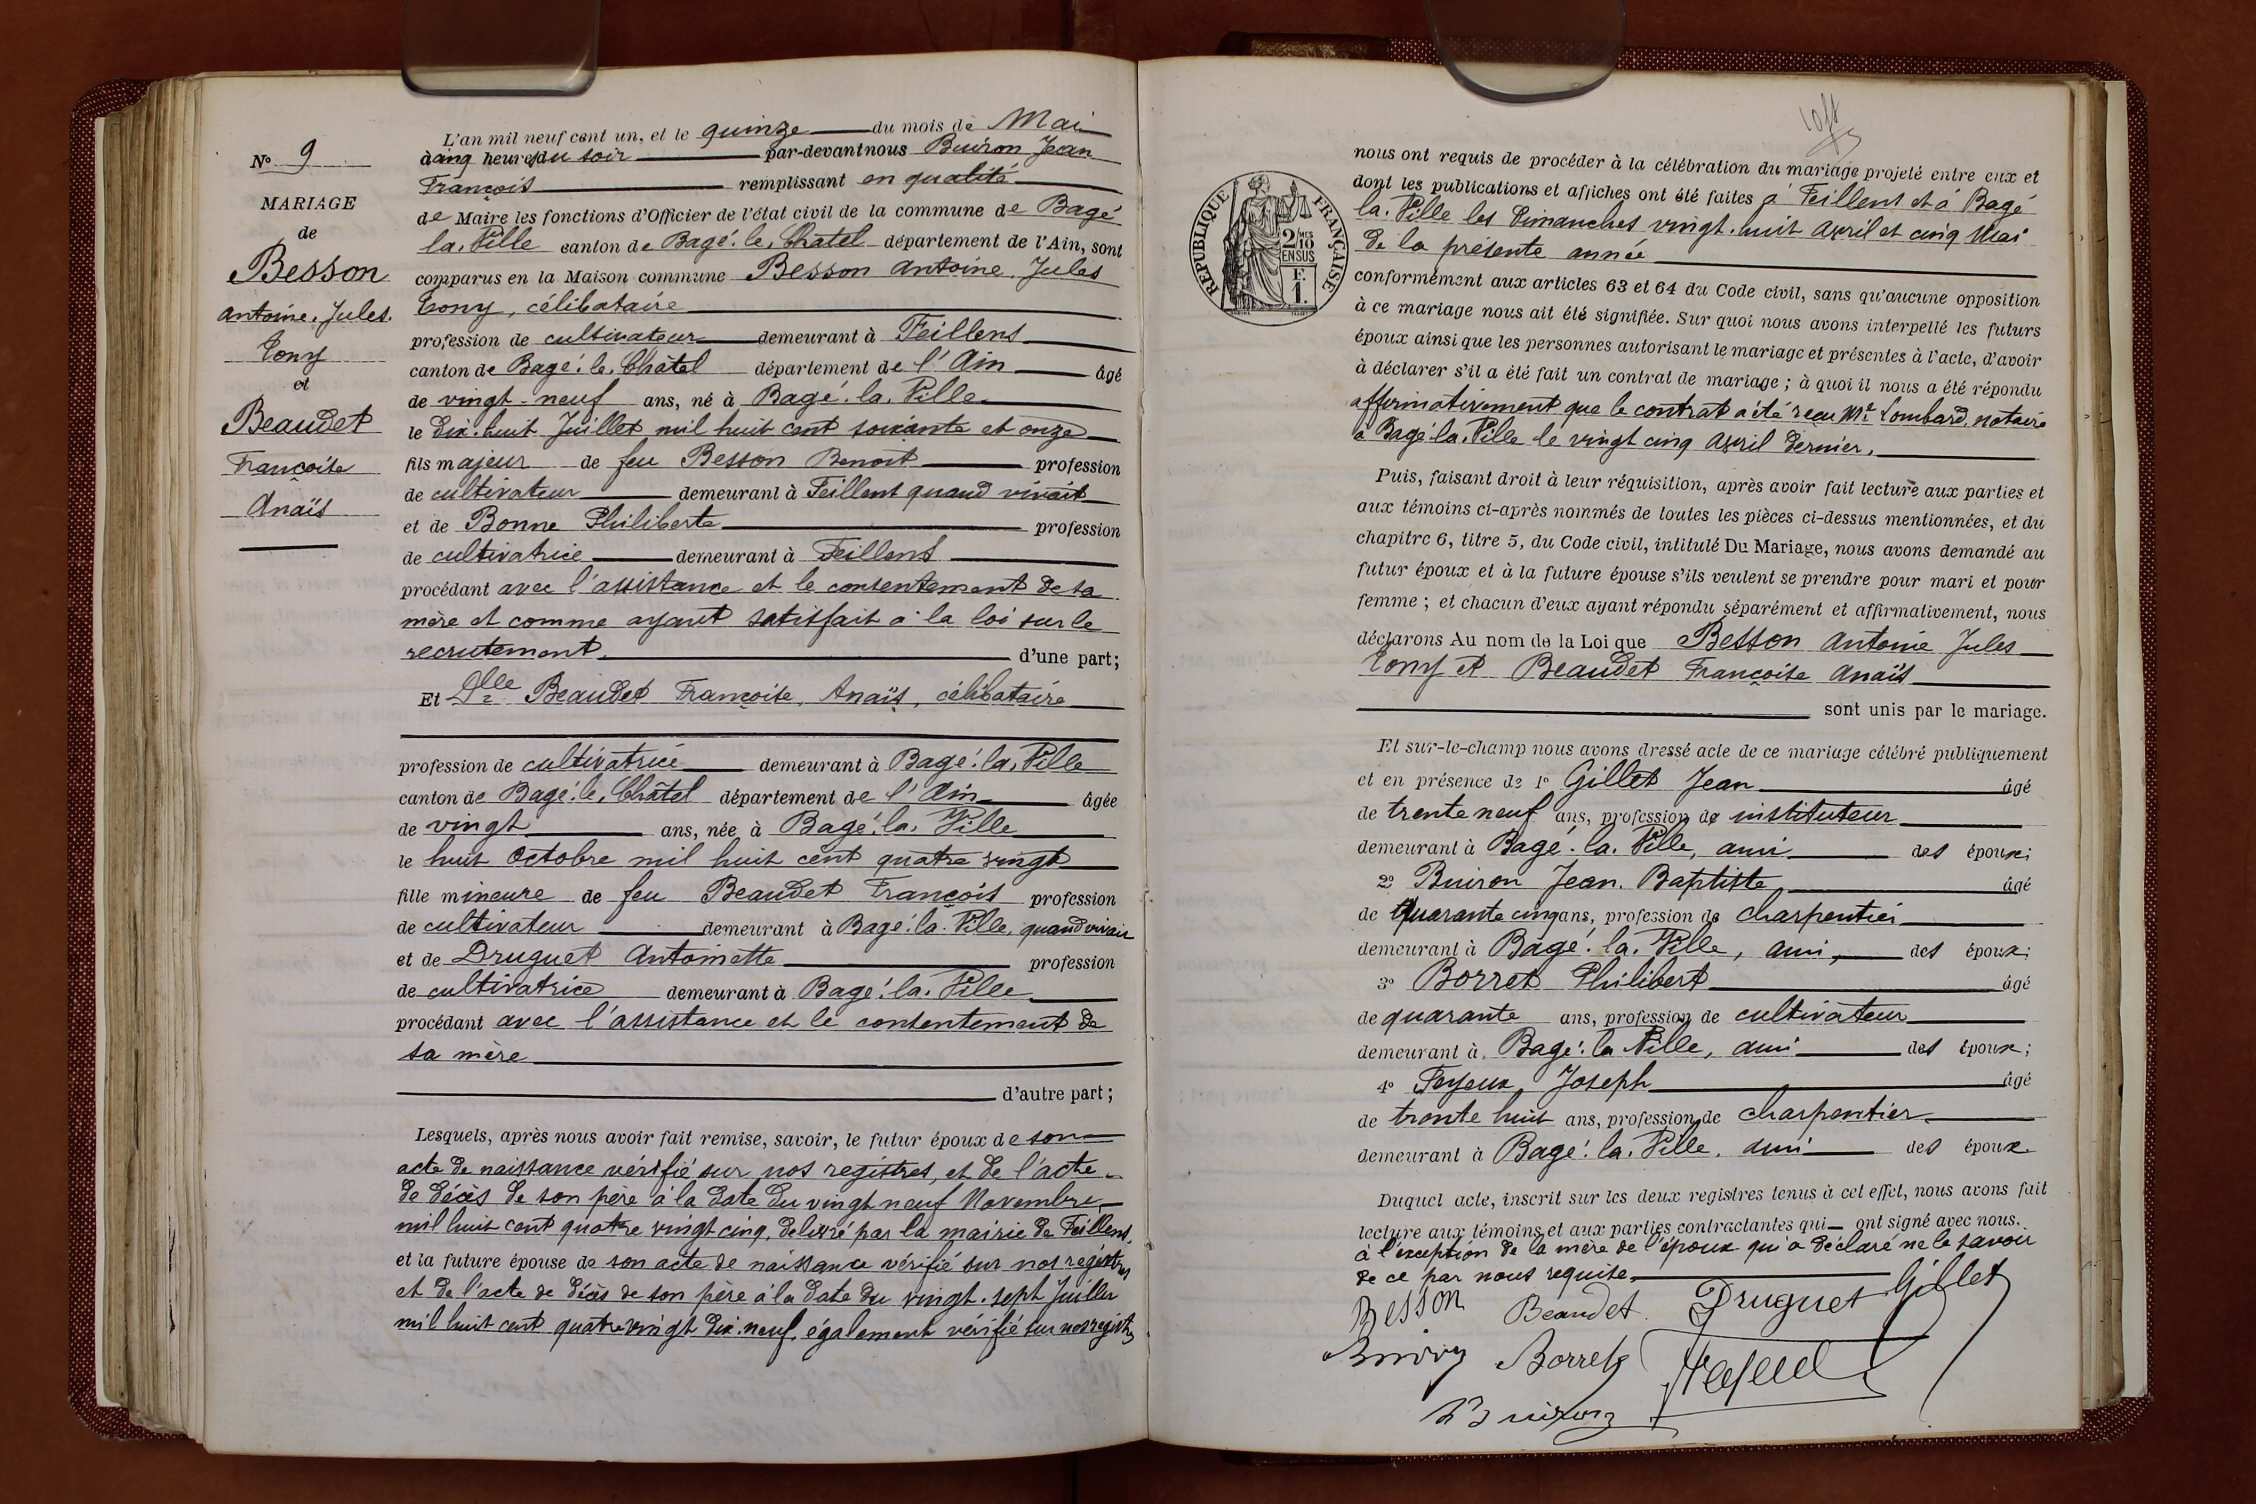 N° 9
MARIAGE
de
Besson
Antoine, Jules.
Tony
et
Beaudet
Françoise
Anaïs
L'an mil neuf cent un, et le quinze du mois de Mai
à cinq heures du soir par-devant nous Buiron Jean
François remplissant en qualité
de Maire les fonctions d'Officier de l'état civil de la commune de Bagé
la Ville canton de Bagé-le-Châtel département de l'Ain, sont
comparus en la Maison commune Besson Antoine Jules
Tony, célibataire
profession de cultivateur demeurant à Feillens
canton de Bagé-le-Châtel département de l'Ain âgé
de vingt-neuf ans, né à Bagé-la-Ville
le dix-huit Juillet mil huit cent soixante et onze
fils majeur de feu Besson Benoit profession
de cultivateur demeurant à Feillens quand vivait
et de Bonne Philiberte profession
de cultivatrice demeurant à Feillens
procédant avec l'assistance et le consentement de sa
mère et comme ayant satisfait à la loi sur le
recrutement. d'une part;
Et Dlle Beaudet Françoise, Anaïs, célibataire
profession de cultivatrice demeurant à Bagé-la-Ville
canton de Bagé-le-Châtel département de l'Ain âgée
de vingt ans, née à Bagé-la-Ville
le huit Octobre mil huit cent quatre vingt
fille mineure de feu Beaudet François profession
de cultivateur demeurant à Bagé-la-Ville, quand vivait
et de Druguet Antoinette profession
de cultivatrice demeurant à Bagé-la-Ville
procédant avec l'assistance et le consentement de
sa mère
d'autre part;
Lesquels, après nous avoir fait remise, savoir, le futur époux de son
acte de naissance vérifié sur nos registres, et de l'acte
de décès de son père à la date du vingt neuf Novembre
mil huit cent quatre vingt cinq, délivré par la mairie de Feillens,
et la future épouse de son acte de naissance vérifié sur nos registres
et de l'acte de décès de son père à la date du vingt-sept Juillet
mil huit cent quatre vingt dix-neuf, également vérifié sur nos registres
RÉPUBLIQUE FRANÇAISE
2/10 MES
EN SUS
F.
1.
nous ont requis de procéder à la célébration du mariage projeté entre eux et
dont les publications et affiches ont été faites à Feillens et à Bagé
la Ville les Dimanches vingt-huit avril et cinq Mai
de la présente année
conformément aux articles 63 et 64 du Code civil, sans qu'aucune opposition
à ce mariage nous ait été signifiée. Sur quoi nous avons interpellé les futurs
époux ainsi que les personnes autorisant le mariage et présentes à l'acte, d'avoir
à déclarer s'il a été fait un contrat de mariage; à quoi il nous a été répondu
affirmativement que le contrat a été reçu Me Lombard, notaire
à Bagé-la-Ville le vingt cinq avril dernier.
Puis, faisant droit à leur réquisition, après avoir fait lecture aux parties et
aux témoins ci-après nommés de toutes les pièces ci-dessus mentionnées, et du
chapitre 6, titre 5, du Code civil, intitulé Du Mariage, nous avons demandé au
futur époux et à la future épouse s'ils veulent se prendre pour mari et pour
femme; et chacun d'eux ayant répondu séparément et affirmativement, nous
déclarons Au nom de la Loi que Besson Antoine Jules
Tony et Beaudet Françoise Anaïs
sont unis par le mariage.
Et sur-le-champ nous avons dressé acte de ce mariage célébré publiquement
et en présence de 1° Gillet Jean âgé
de trente neuf ans, profession de instituteur
demeurant à Bagé-la-Ville, ami des époux;
2° Buiron Jean-Baptiste âgé
de Quarante cinq ans, profession de charpentier
demeurant à Bagé-la-Ville, ami, des époux;
3° Borret Philibert âgé
de quarante ans, profession de cultivateur
demeurant à Bagé-la-Ville, ami des époux;
4° Feyeux Joseph âgé
de trente huit ans, profession de charpentier
demeurant à Bagé-la-Ville, ami des époux
Duquel acte, inscrit sur les deux registres tenus à cet effet, nous avons fait
lecture aux témoins et aux parties contractantes qui ont signé avec nous.
à l'exception de la mère de l'époux qui a déclaré ne le savoir
de ce par nous requise.
Besson Beaudet Druguet Gillet
Buiron Borret
Buiron